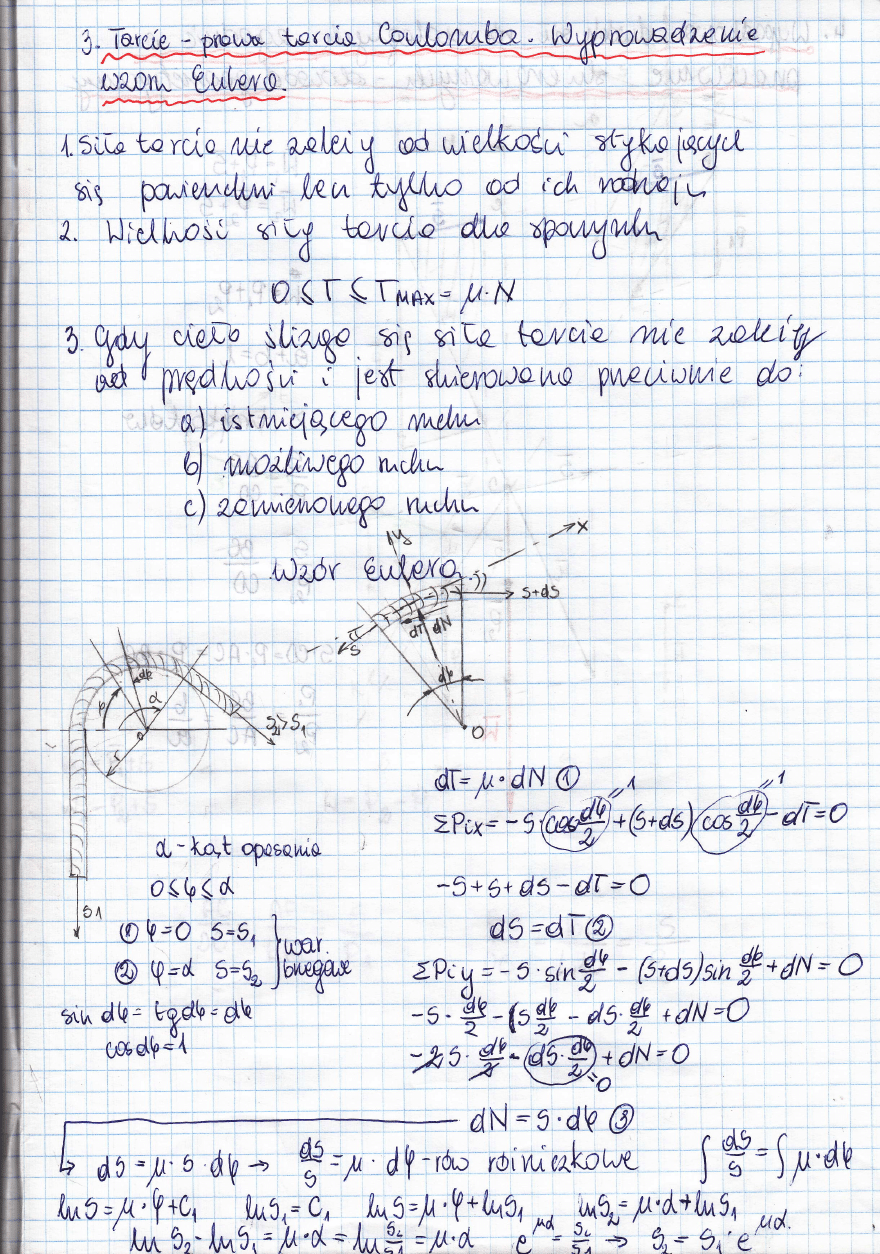 3. Tarcie - prawa tarcia Coulomba. Wyprowadzenie
wzoru Eulera.
1. Siła tarcia nie zależy od wielkości stykających
się powierzchni lecz tylko od ich rodzaju
2. Wielkość siły tarcia dla spoczynku
0 ⩽ T ⩽ TMAX = μ·N
3. Gdy ciało ślizga się siła tarcia nie zależy
od prędkości i jest skierowana przeciwnie do:
a) istniejącego ruchu
b) możliwego ruchu
c) zamierzonego ruchu
Wzór Eulera
y
x
S+dS
S
dT dN
dφ
O
dφ
φ
α
r
S2>S1
S1
α - kąt opasania
0⩽φ⩽α
① φ=0 S=S1
② φ=α S=S2
war. brzegowe
sin dφ = tg dφ = dφ
cos dφ = 1
dT = μ·dN ①
ΣPix = -S·cos dφ/2 + (S+dS) cos dφ/2 - dT = 0
=1 =1
-S+S+dS-dT=0
dS=dT ②
ΣPiy = -S·sin dφ/2 - (S+dS) sin dφ/2 + dN = 0
-S·dφ/2 - S dφ/2 - dS·dφ/2 + dN = 0
-2S·dφ/2 - dS·dφ/2 + dN = 0
=0
dN = S·dφ ③
↳ dS = μ·S·dφ → dS/S = μ·dφ - rów różniczkowe ∫ dS/S = ∫ μ·dφ
lnS = μ·φ+C1 lnS1 = C1 lnS = μ·φ+lnS1 lnS2 = μ·α+lnS1
ln S2 - lnS1 = μ·α = ln S2/S1 = μ·α e^μα = S2/S1 → S2 = S1·e^μα